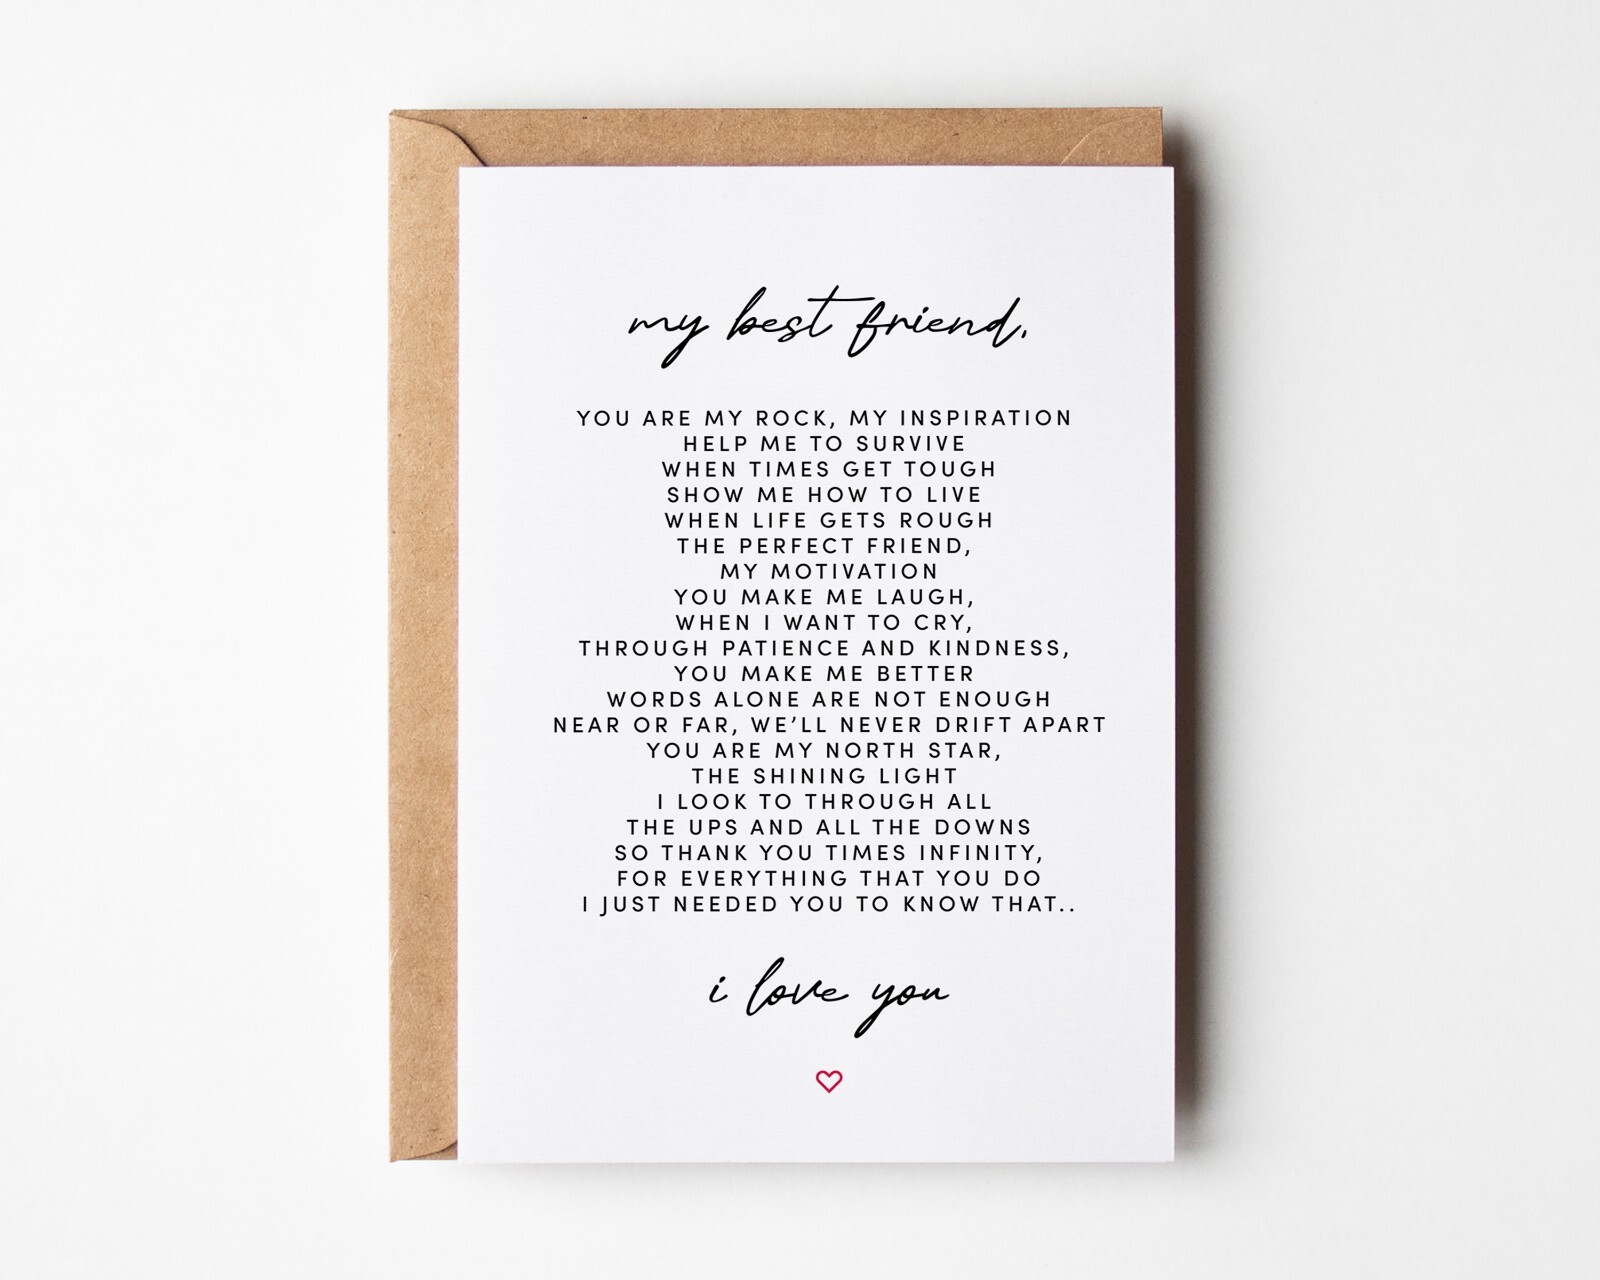 my best friend,
YOU ARE MY ROCK, MY INSPIRATION
HELP ME TO SURVIVE
WHEN TIMES GET TOUGH
SHOW ME HOW TO LIVE
WHEN LIFE GETS ROUGH
THE PERFECT FRIEND,
MY MOTIVATION
YOU MAKE ME LAUGH,
WHEN I WANT TO CRY,
THROUGH PATIENCE AND KINDNESS,
YOU MAKE ME BETTER
WORDS ALONE ARE NOT ENOUGH
NEAR OR FAR, WE’LL NEVER DRIFT APART
YOU ARE MY NORTH STAR,
THE SHINING LIGHT
I LOOK TO THROUGH ALL
THE UPS AND ALL THE DOWNS
SO THANK YOU TIMES INFINITY,
FOR EVERYTHING THAT YOU DO
I JUST NEEDED YOU TO KNOW THAT..
i love you